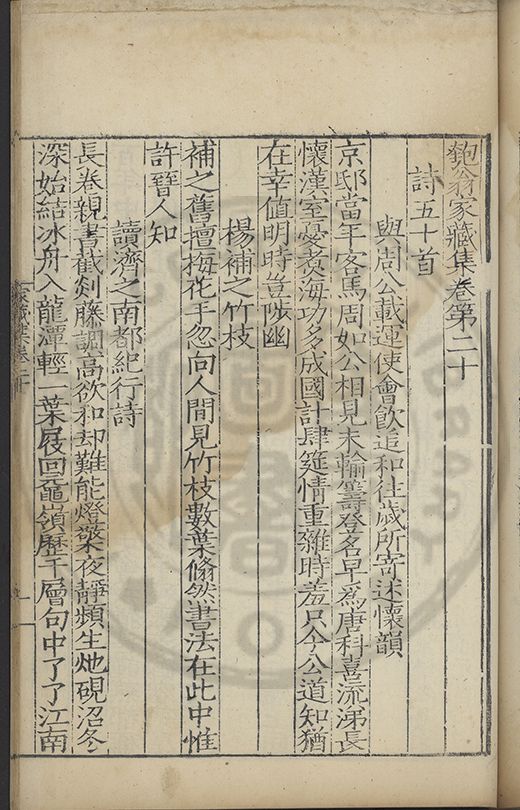 匏翁家藏集卷第二十
詩五十首
與周公載運使會飲追和往歲所寄述懷韻
京邸當年客馬周如公相見未輸籌登名早爲唐科喜流涕長
懷漢室憂煑海功多成國計肆筵情重雜時羞只今公道知猶
在幸値明時豈陟幽
楊補之竹枝
補之舊擅梅花手忽向人間見竹枝數葉翛然書法在此中惟
許晉人知
讀濟之南都紀行詩
長卷親書截剡藤調高欲和却難能燈檠夜靜頻生灺硯沼冬
深始結冰舟入龍潭輕一葉屐回黿嶺歷千層句中了了江南